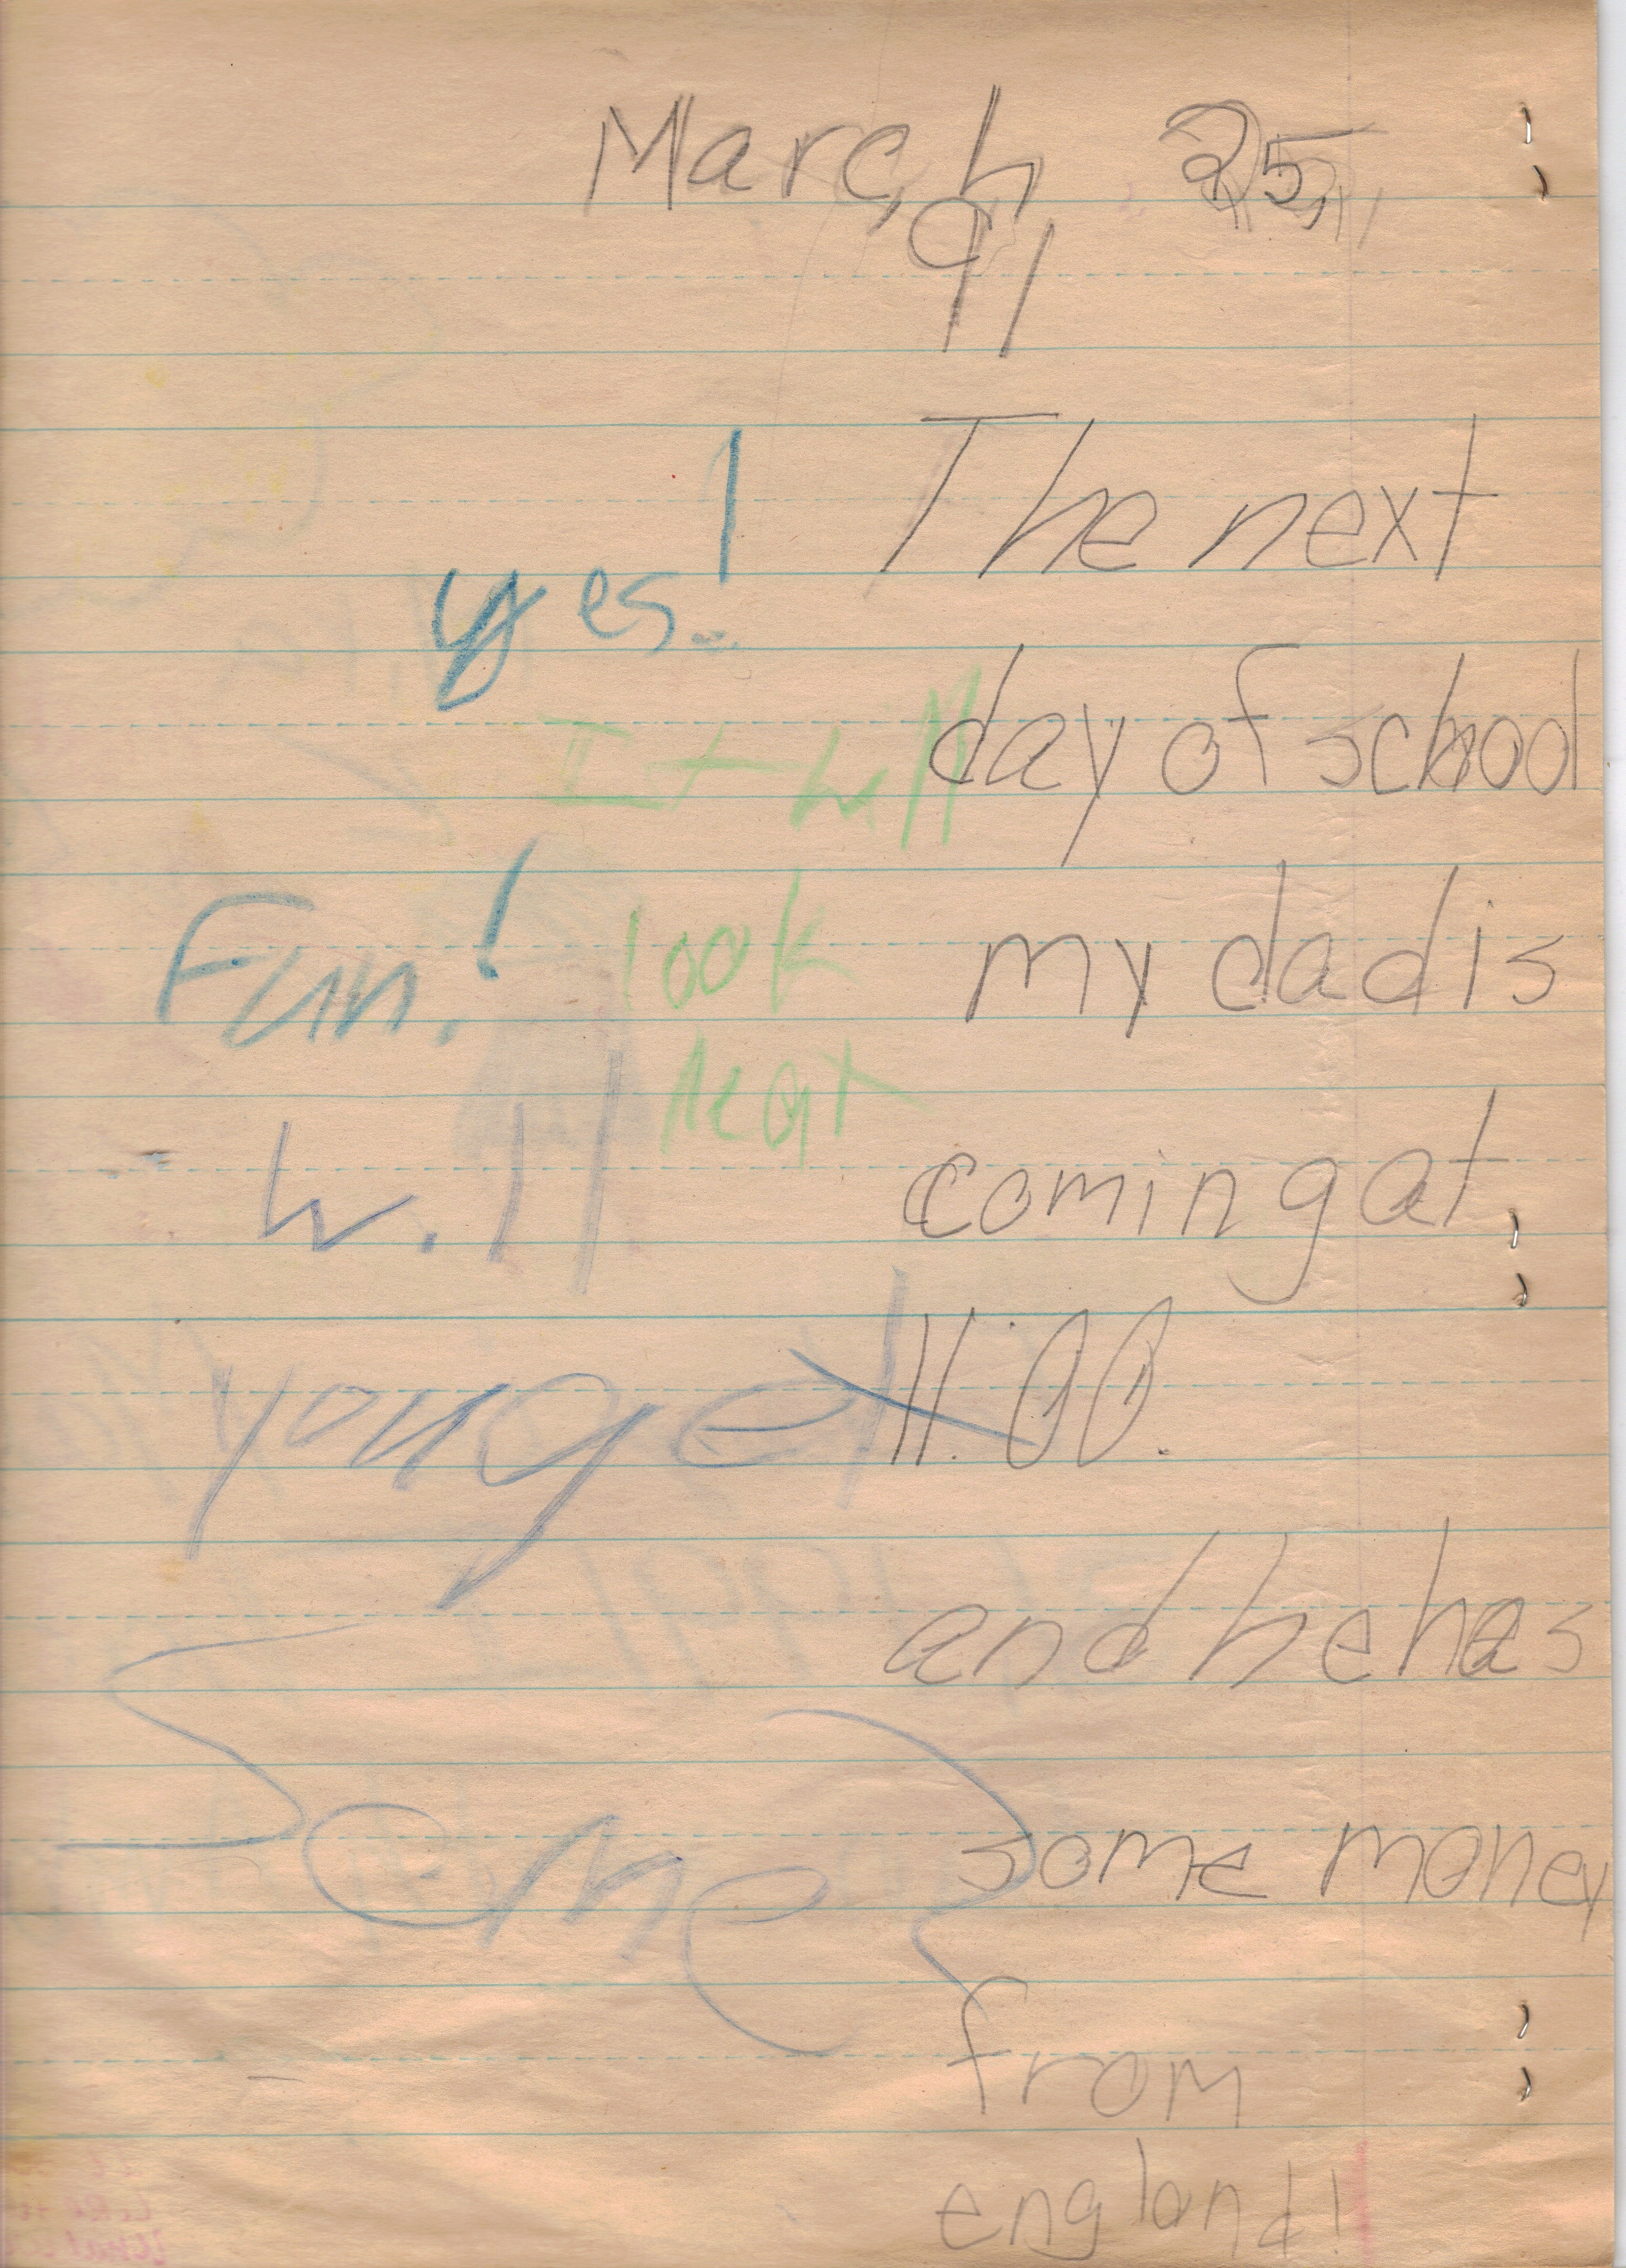 March 25,
91
The next
day of school
my dad is
coming at
11:00.
and he has
some money
from
england!
yes!
It will
look
neat
Fun!
Will
you get
Some?